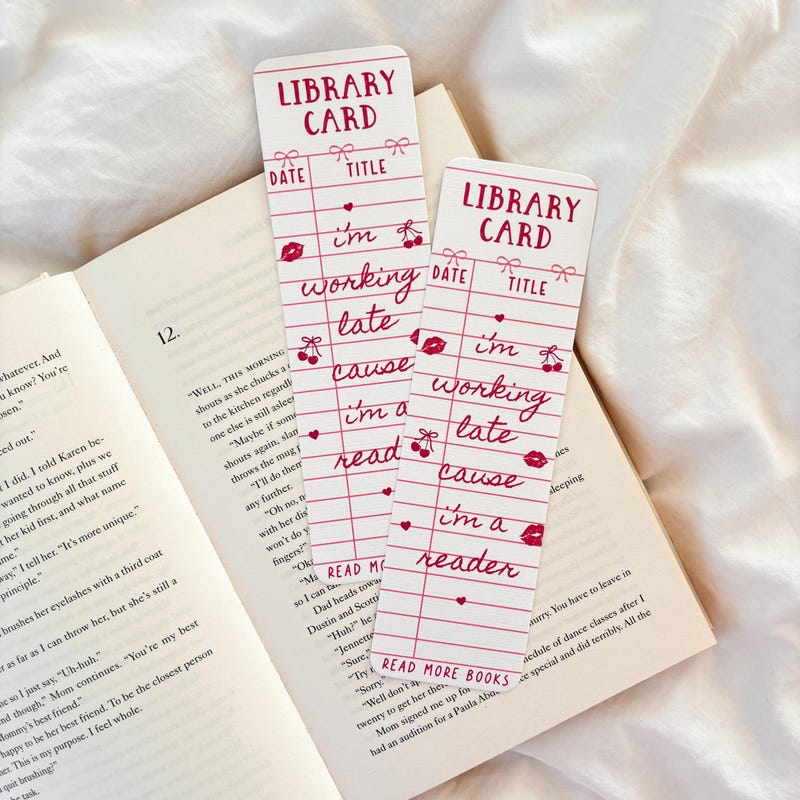 LIBRARY
CARD
DATE TITLE
i'm
working
late
cause
i'm a
read
READ MO
LIBRARY
CARD
DATE TITLE
i'm
working
late
cause
i'm a
reader
READ MORE BOOKS
whatever. And
u know? You're
osen."
ced out."
I did. I told Karen be-
wanted to know, plus we
going through all that stuff
her kid first, and what name
me."
way," I tell her. "It's more unique."
principle."
brushes her eyelashes with a third coat
er as far as I can throw her, but she's still a
ne so I just say, "Uh-huh."
and though." Mom continues. "You're my best
Mommy's best friend."
happy to be her best friend. To be the closest person
her. This is my purpose. I feel whole.
quit brushing?"
he task.
12.
"WELL, THIS MORNING
shouts as she chucks a
to the kitchen regardl
one else is still asleep
"Maybe if some
shouts again, slam
throws the mug
"I'll do them
any further.
"Oh no, n
with her dis
won't do y
fingers?"
"Ok
"Ma
so I can ta
Dad heads towa
Dustin and Scott
"Huh?" he
"Jennette
"Sure."
"Try n
"Sorry."
"Well don't ap
twenty to get her the
Mom signed me up
had an audition for a Paula Abdu
sleeping
urry. You have to leave in
schedule of dance classes after I
special and did terribly. All the